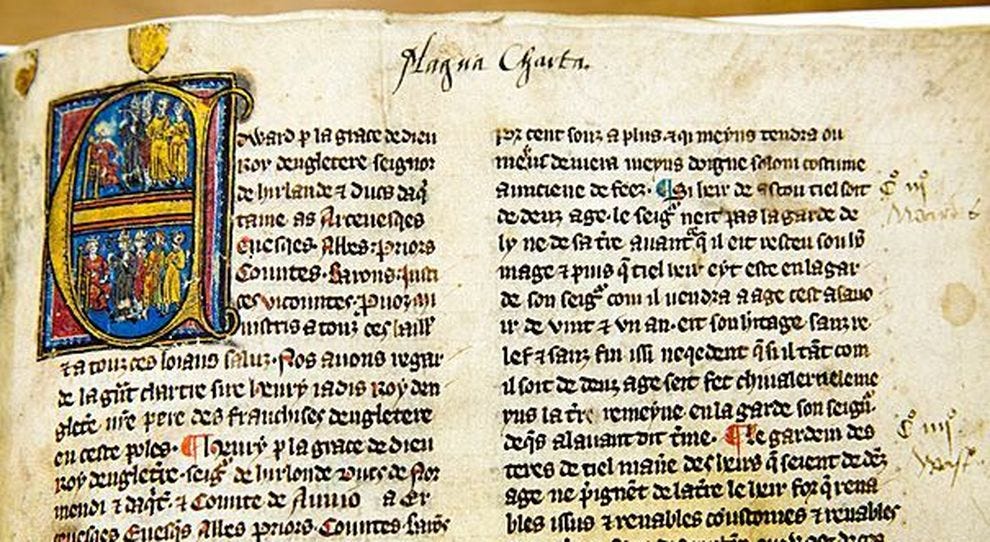 Magna Charta.
Edward p la grace de dieu
Roy dengletere seignor
de hirlande ⁊ Ducs daq̃
taine as Arcevesqes
Evesqes. Abbes. priors
Countes. Barons. justi
ces vicountes. Provoz mi
nistris a touz ces baill'
⁊ a touz ces loiaus saluz. Nos avons regar
de la gñt chartre sire henry iadis Roy den
gletẽ nr̃e pere des franchises dengletere
en ceste poles. ¶ Henry p la grace de dieu
roy dengletẽr. seigʳ de hirlonde Ducs de Nor
mendi ⁊ daq̃t. ⁊ Counte de a Er
cevesqes Evesq̃s Abbes priors Countes
por cent souz a plus. ⁊ qi meyns tendra ou
meins devera meyns doigne solom costume
aunciene de feez. ¶ Si heir de ascou tiel soit
de deuz age. le seigʳ neit pas la garde de
ly ne de sa tr̃e avant q̃ il eit resceu son ho
mage ⁊ puis q̃ tiel heir eyt este en la gar
de son seigʳ com il vendra a age cest a savo
ir de vint ⁊ vn an. eit son hitage sanz re
lef ⁊ sanz fin issi neqedent q̃ si il tãt com
il soit de deuz age seit fet chivaler neleme
yns la tr̃e remeyne en la garde son seigñ.
deqs al avant dit t̃me. ¶ Le gardein des
teres de tiel mañe des heirs q̃ seient de dẽz
age ne p̃ignẽt de la tr̃e le heir for q̃ rena
bles issus ⁊ renables coustomes ⁊ renables
C° iij°
C° iiij°